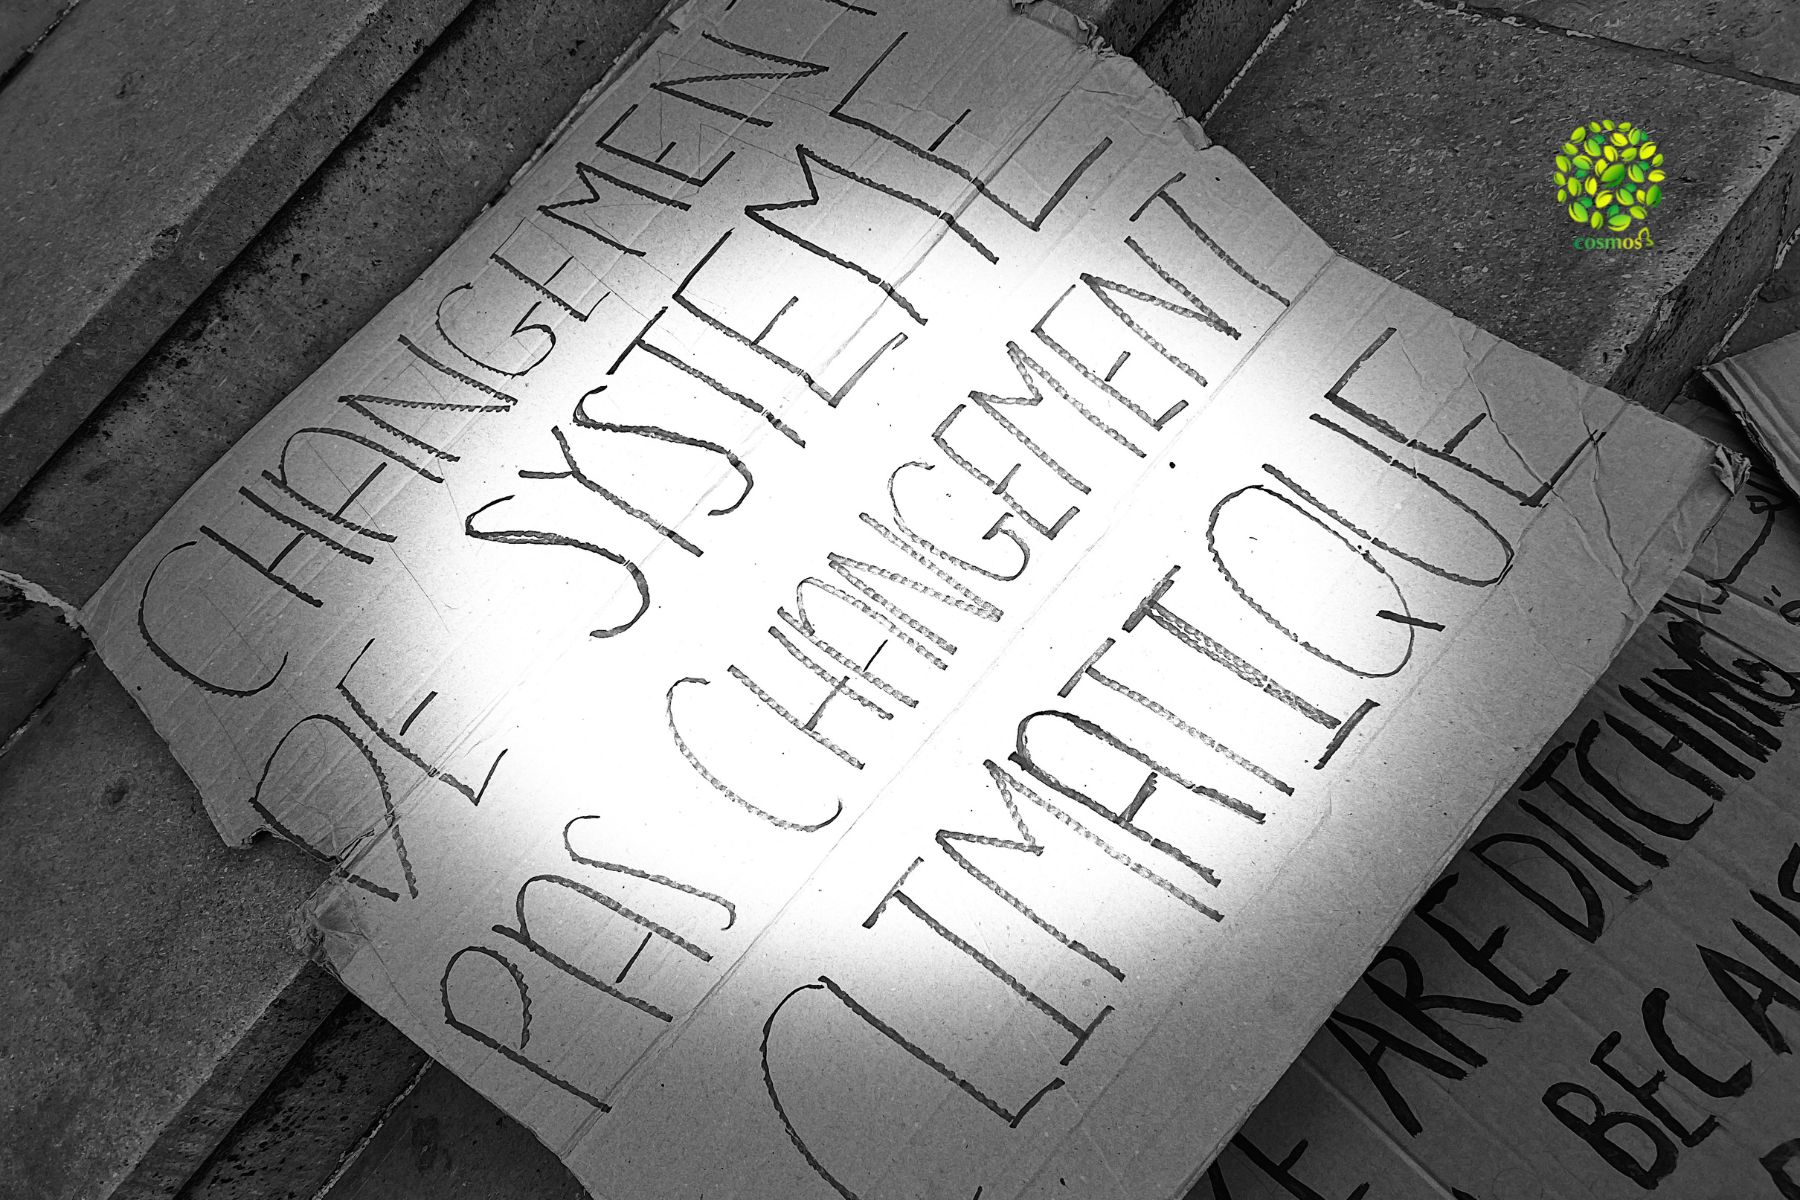 CHANGEMENT
DE SYSTEME
PAS CHANGEMENT
CLIMATIQUE
ARE DITCHING
BECAUS
cosmos